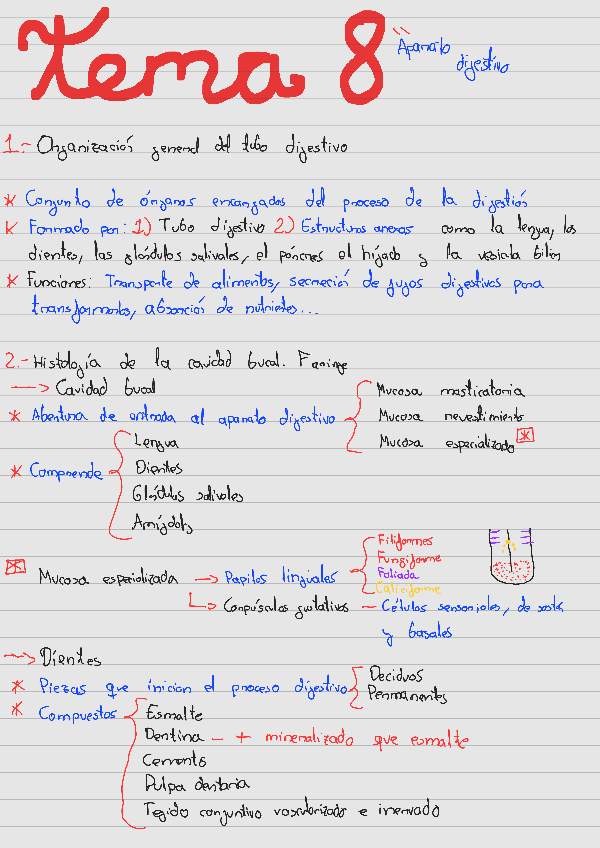 Tema 8
"Aparato
digestivo
1.- Organización general del tubo digestivo
* Conjunto de órganos encargados del proceso de la digestión
* Formado por: 1) Tubo digestivo 2) Estructuras anexas como la lengua, los
dientes, las glándulas salivales, el páncreas el hígado y la vesícula biliar
* Funciones: Transporte de alimentos, secreción de jugos digestivos para
transformarlos, absorción de nutrientes...
2.- Histología de la cavidad bucal. Faringe
→ Cavidad bucal
* Abertura de entrada al aparato digestivo
Mucosa masticatoria
Mucosa revestimiento
Mucosa especializada *
* Comprende
Lengua
Dientes
Glándulas salivales
Amígdalas
* Mucosa especializada → Papilas linguales
Filiformes
Fungiforme
Foliada
Caliciforme
↳ Corpúsculos gustativos - Células sensoriales, de sostén
y basales
→ Dientes
* Piezas que inician el proceso digestivo
Deciduos
Permanentes
* Compuestos
Esmalte
Dentina - + mineralizado que esmalte
Cemento
Pulpa dentaria
Tejido conjuntivo vascularizado e inervado